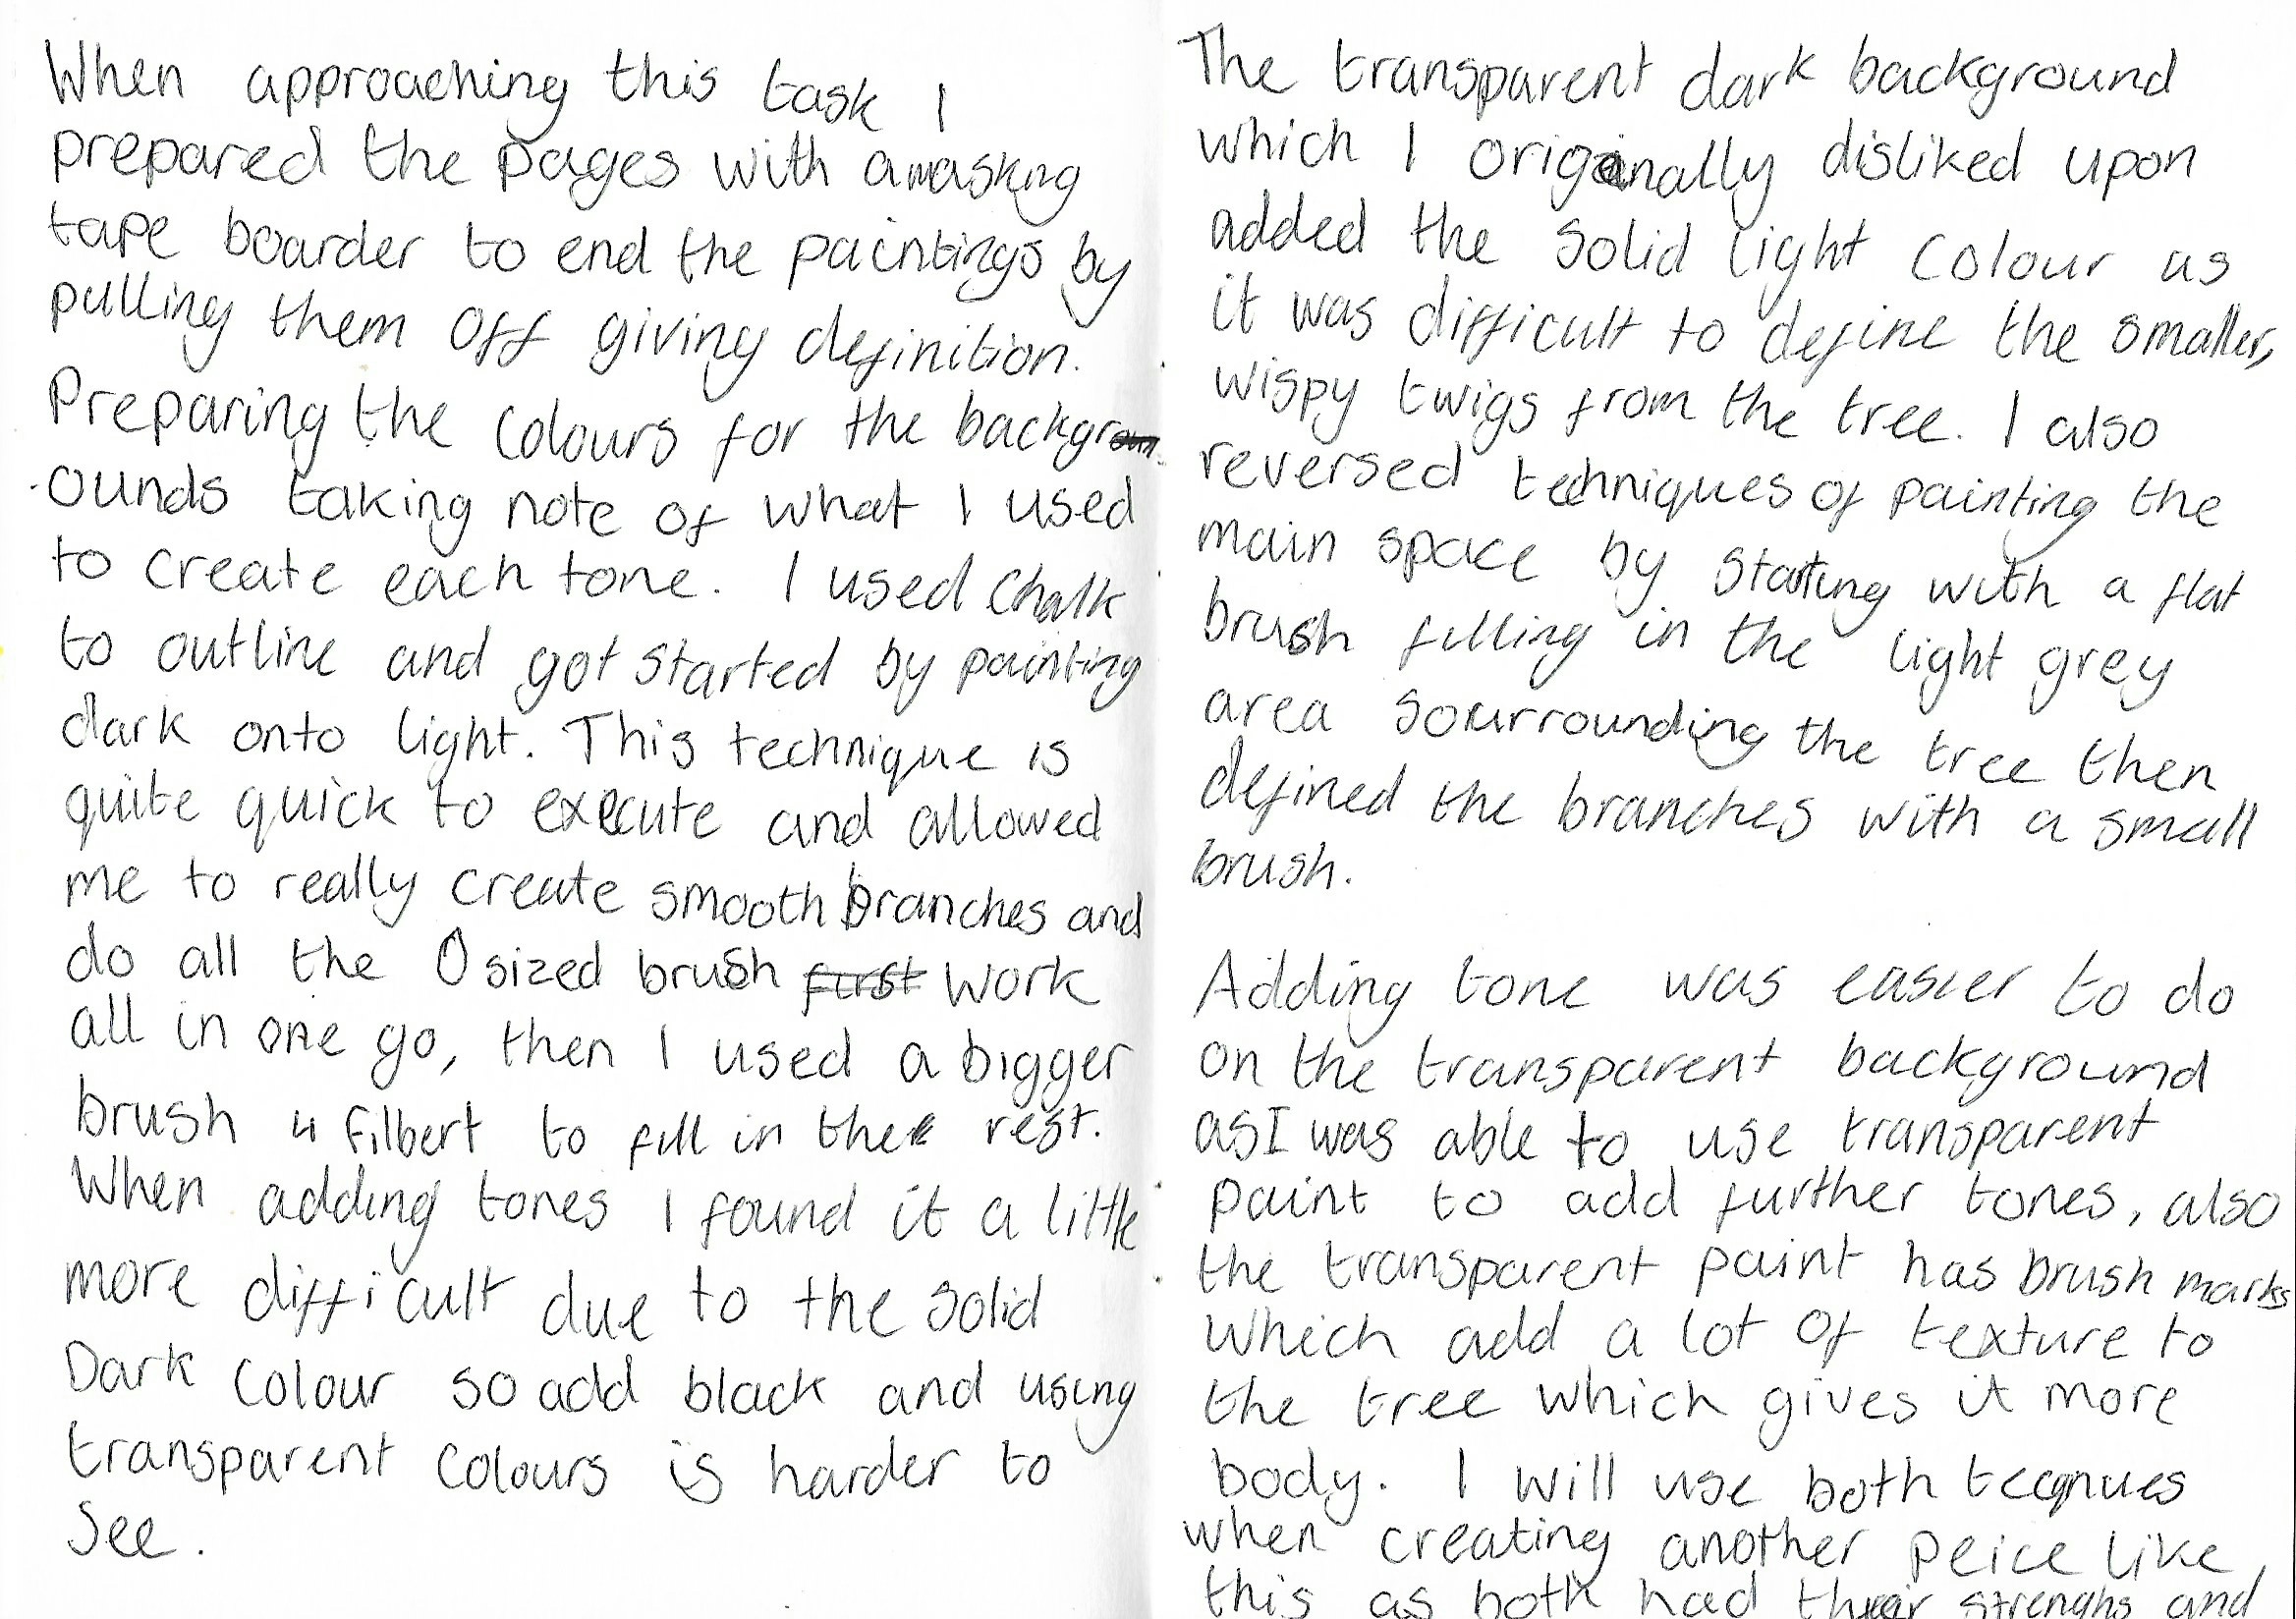 When approaching this task I
prepared the pages with a masking
tape boarder to end the paintings by
pulling them off giving definition.
Preparing the colours for the backgr
ounds taking note of what I used
to create each tone. I used chalk
to outline and got started by painting
dark onto light. This technique is
quite quick to execute and allowed
me to really create smooth branches and
do all the 0 sized brush first work
all in one go, then I used a bigger
brush 4 filbert to fill in the rest.
When adding tones I found it a little
more difficult due to the solid
Dark colour so add black and using
transparent colours is harder to
see.
The transparent dark background
which I originally disliked upon
added the solid light colour as
it was difficult to define the smaller,
wispy twigs from the tree. I also
reversed techniques of painting the
main space by starting with a flat
brush filling in the light grey
area sourrounding the tree then
defined the branches with a small
brush.
Adding tone was easier to do
on the transparent background
as I was able to use transparent
paint to add further tones, also
the transparent paint has brush marks
which add a lot of texture to
the tree which gives it more
body. I will use both tecqnues
when creating another peice like
this as both had their strenghs and